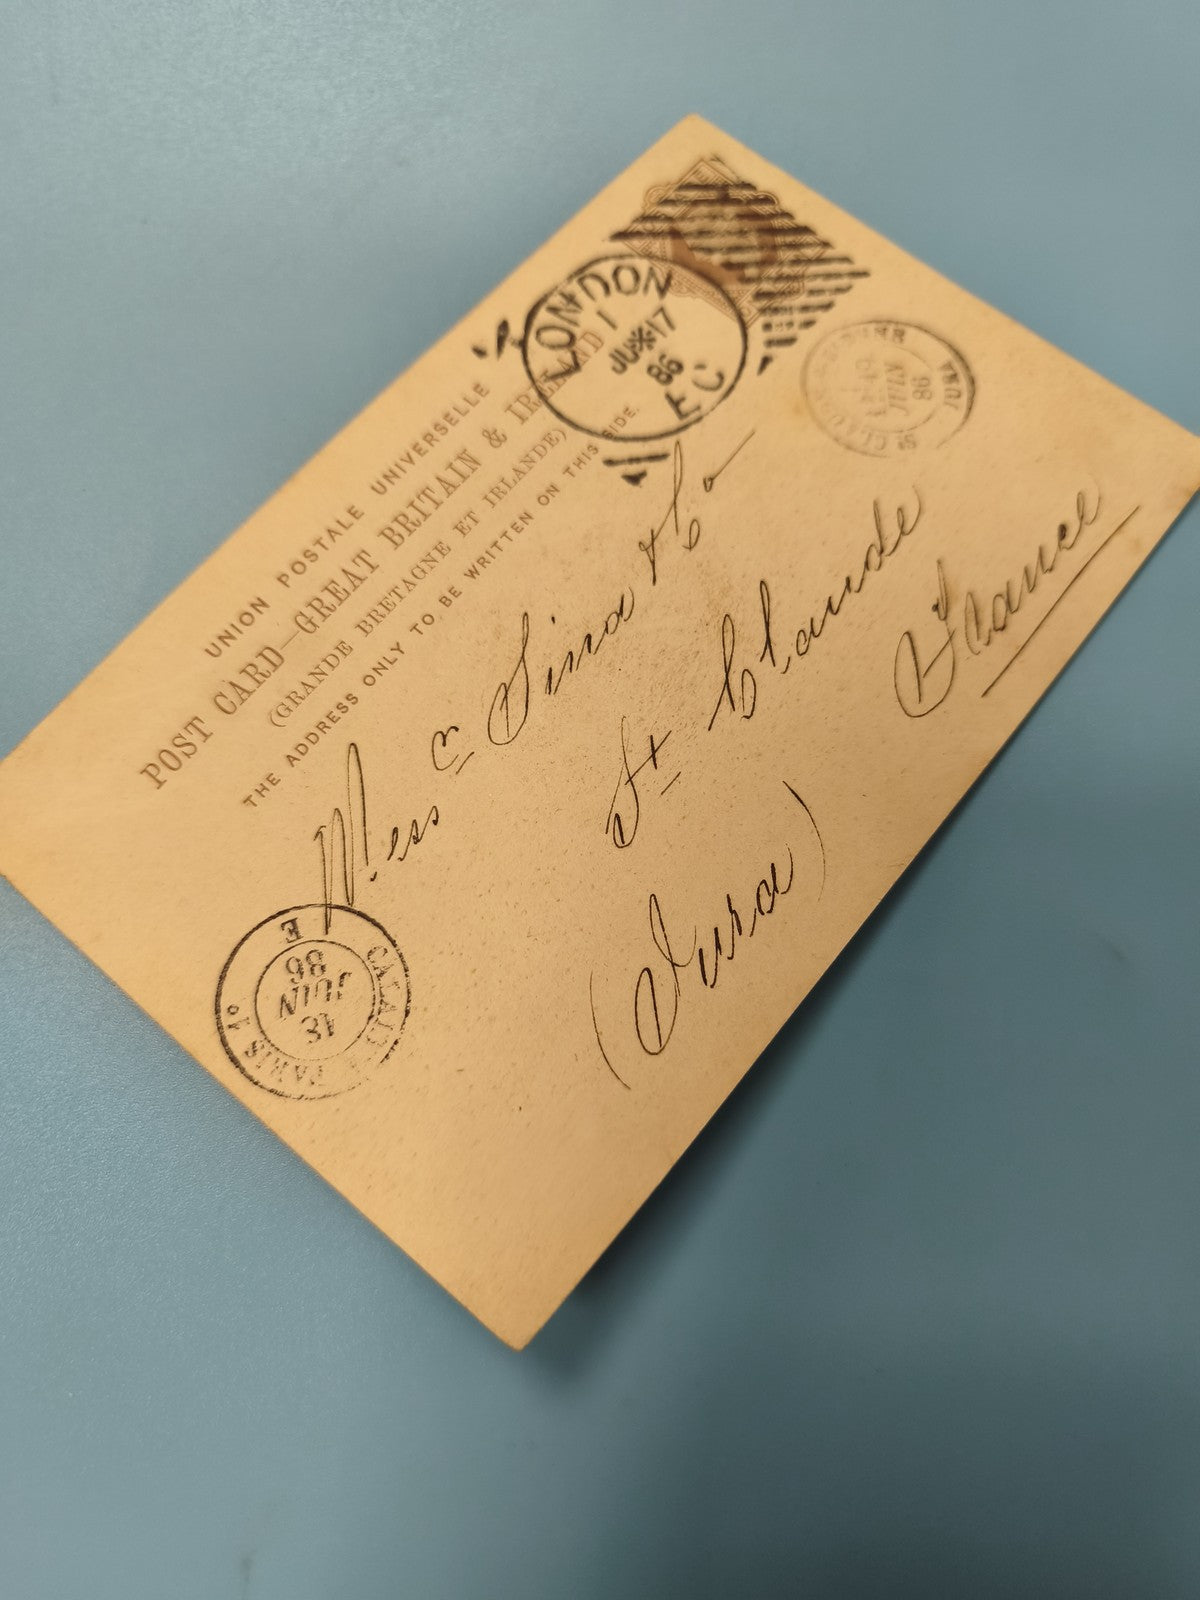 UNION POSTALE UNIVERSELLE
POST CARD—GREAT BRITAIN & IRELAND
(GRANDE BRETAGNE ET IRLANDE)
THE ADDRESS ONLY TO BE WRITTEN ON THIS SIDE.
LONDON
1
JU 17
86
EC
ST CLAUDE
JURA
JUIN
86
Messrs Sina & Co
St Claude
(Jura)
France
CALAIS A PARIS 1º
E
18
JUIN
86